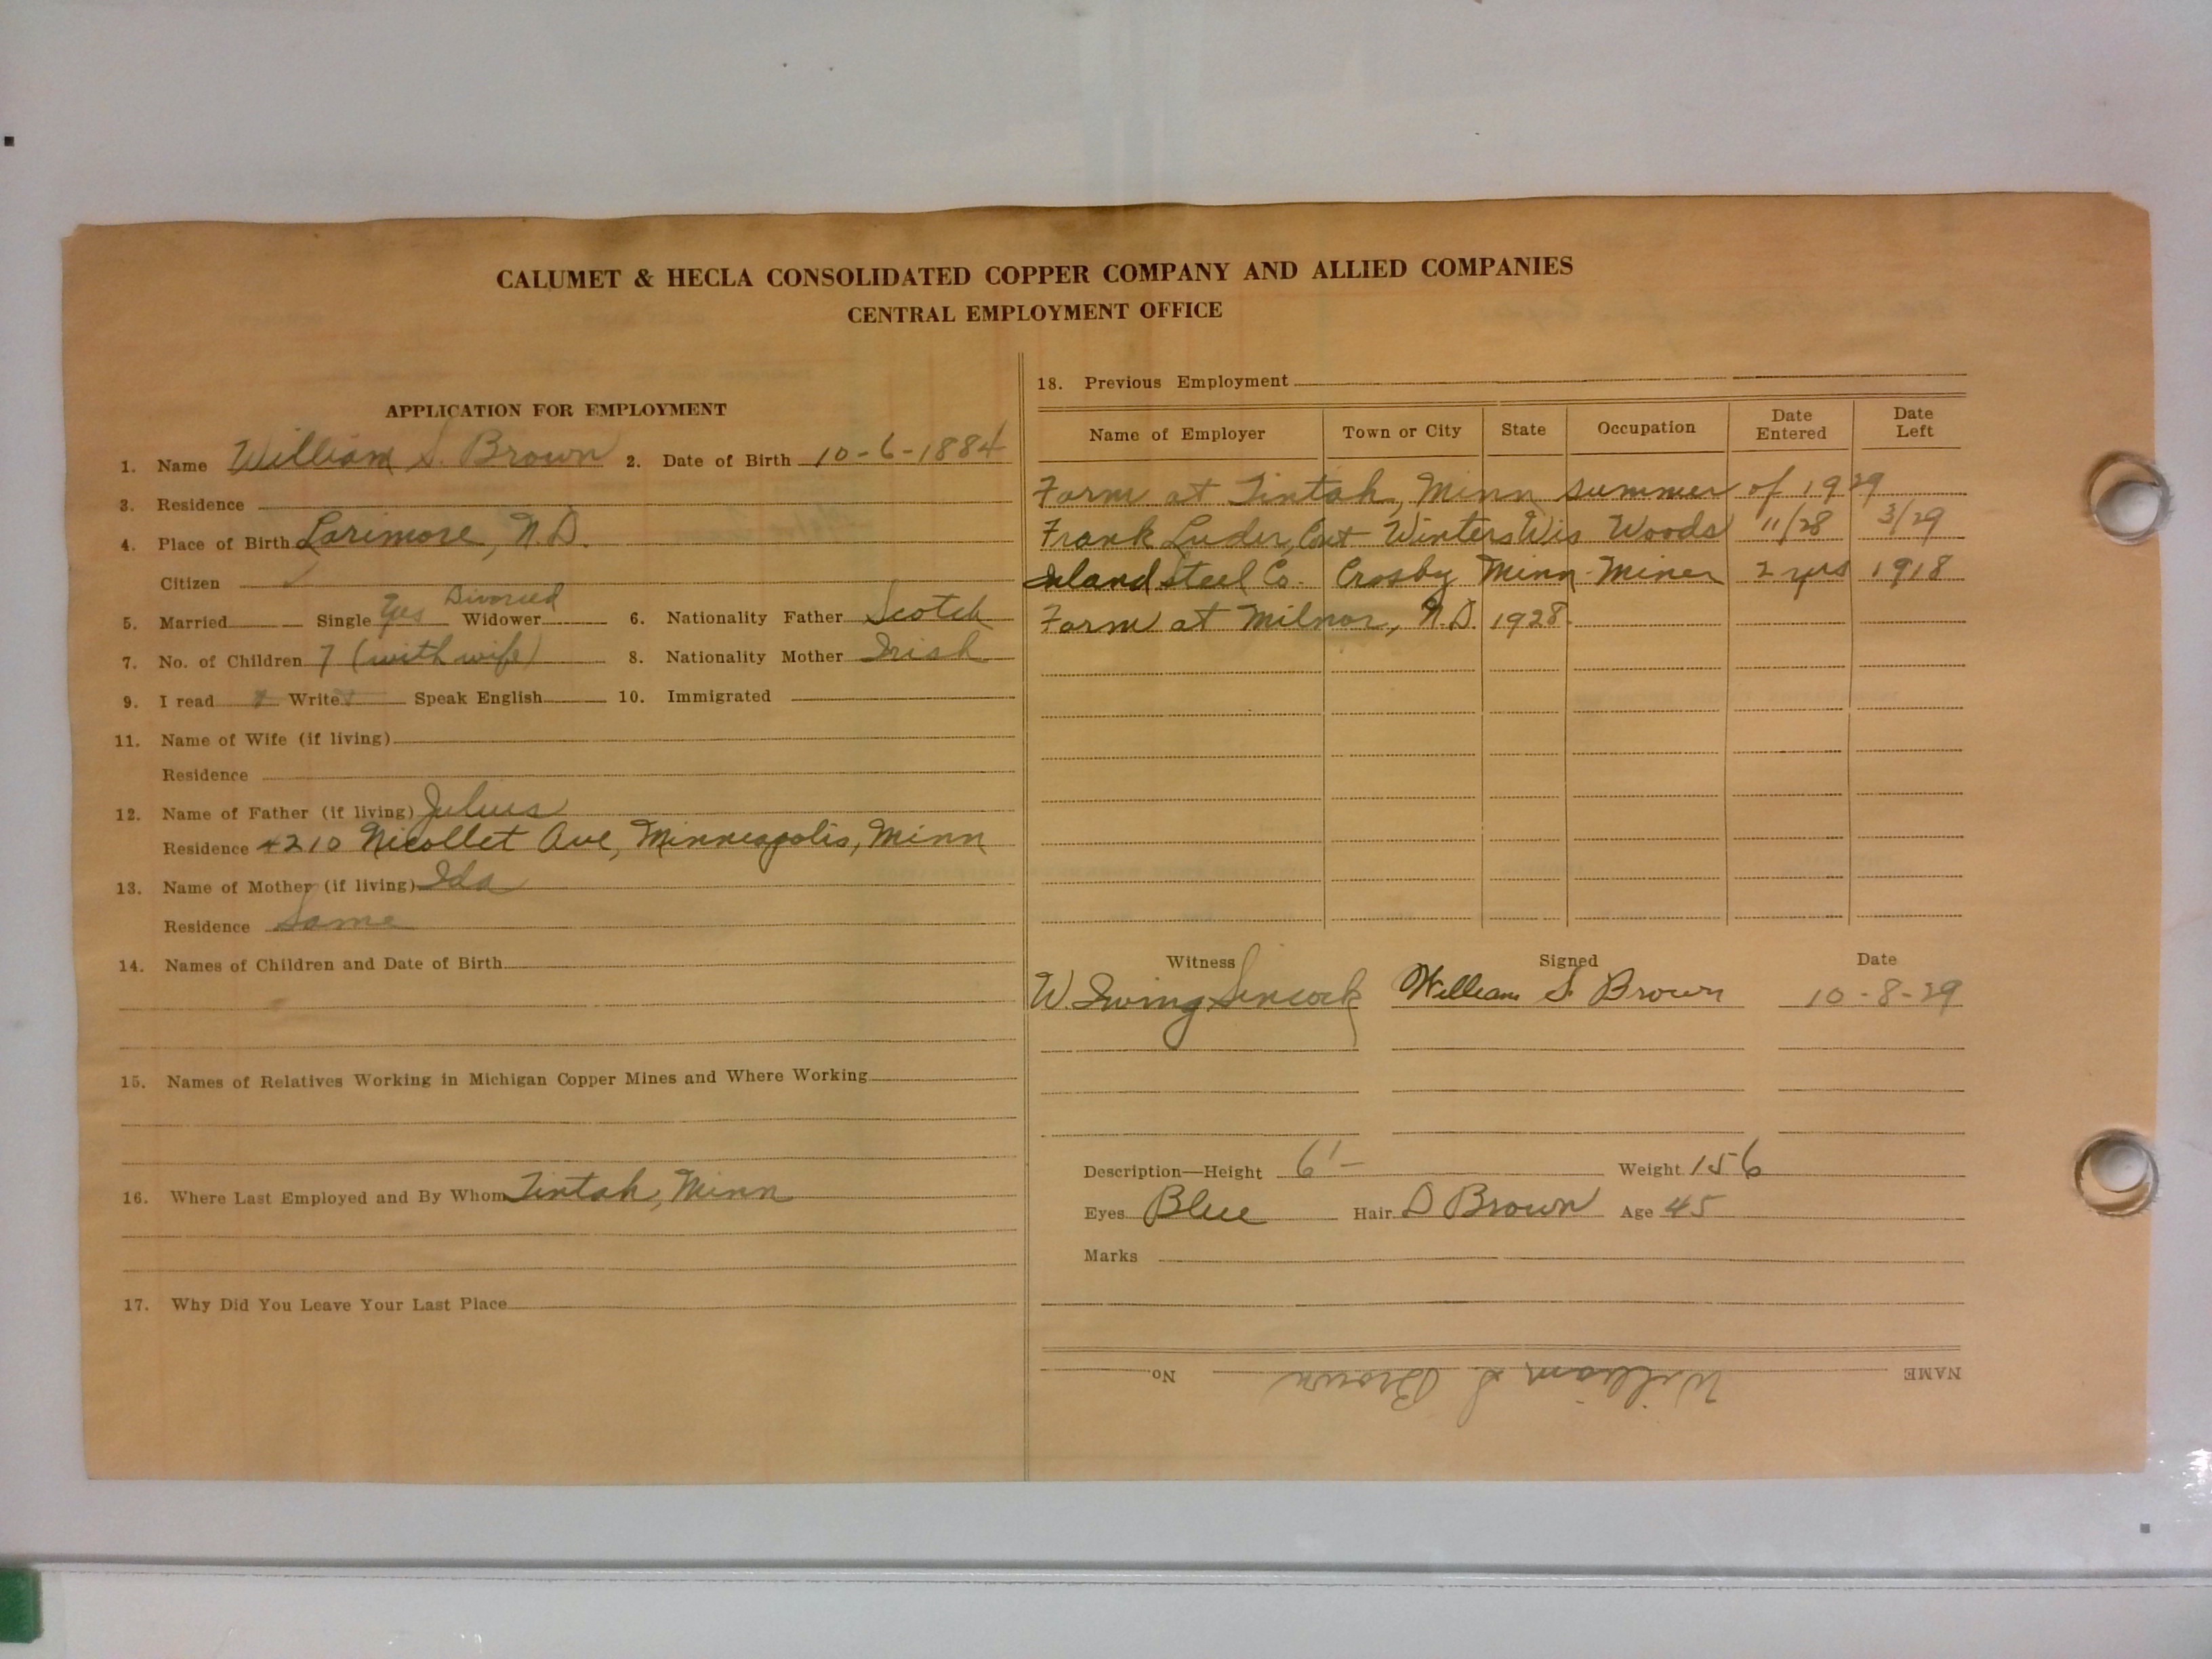 CALUMET & HECLA CONSOLIDATED COPPER COMPANY AND ALLIED COMPANIES
CENTRAL EMPLOYMENT OFFICE
APPLICATION FOR EMPLOYMENT
1. Name William S. Brown 2. Date of Birth 10-6-1884
3. Residence
4. Place of Birth Larimore, N.D.
Citizen ✓
Divorced
5. Married Single Yes Widower 6. Nationality Father Scotch
7. No. of Children 7 (with wife) 8. Nationality Mother Irish
9. I read Write Speak English 10. Immigrated
11. Name of Wife (if living)
Residence
12. Name of Father (if living) Julius
Residence 4210 Nicollet Ave, Minneapolis, Minn
13. Name of Mother (if living) Ida
Residence Same
14. Names of Children and Date of Birth
15. Names of Relatives Working in Michigan Copper Mines and Where Working
16. Where Last Employed and By Whom Tintah, Minn
17. Why Did You Leave Your Last Place
18. Previous Employment
Name of Employer Town or City State Occupation Date Entered Date Left
Farm at Tintah, Minn summer of 1929
Frank Luder, Cont Winters Wis Woods 11/28 3/29
Inland Steel Co. Crosby Minn Miner 2 yrs 1918
Farm at Milnor, N.D. 1928.
Witness Signed Date
W. Irving Sincock William S. Brown 10-8-29
Description—Height 6'- Weight 156
Eyes Blue Hair D Brown Age 45
Marks
NAME William S Brown No.